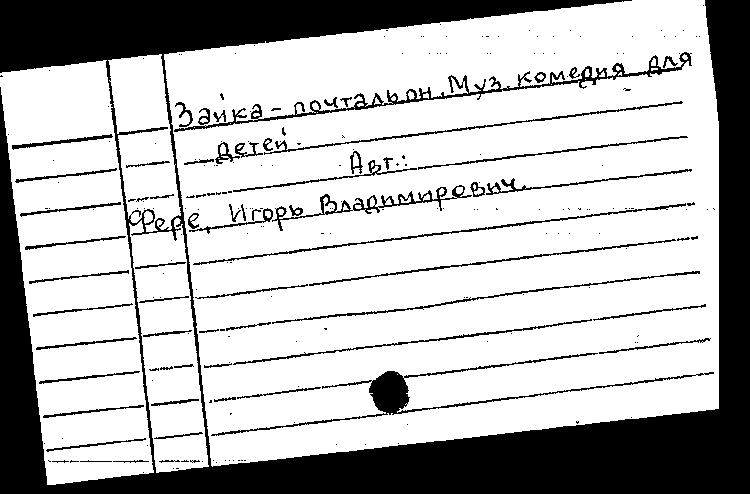 Зайка-почтальон. Муз. комедия для
детей.
Авт.:
Фере, Игорь Владимирович.